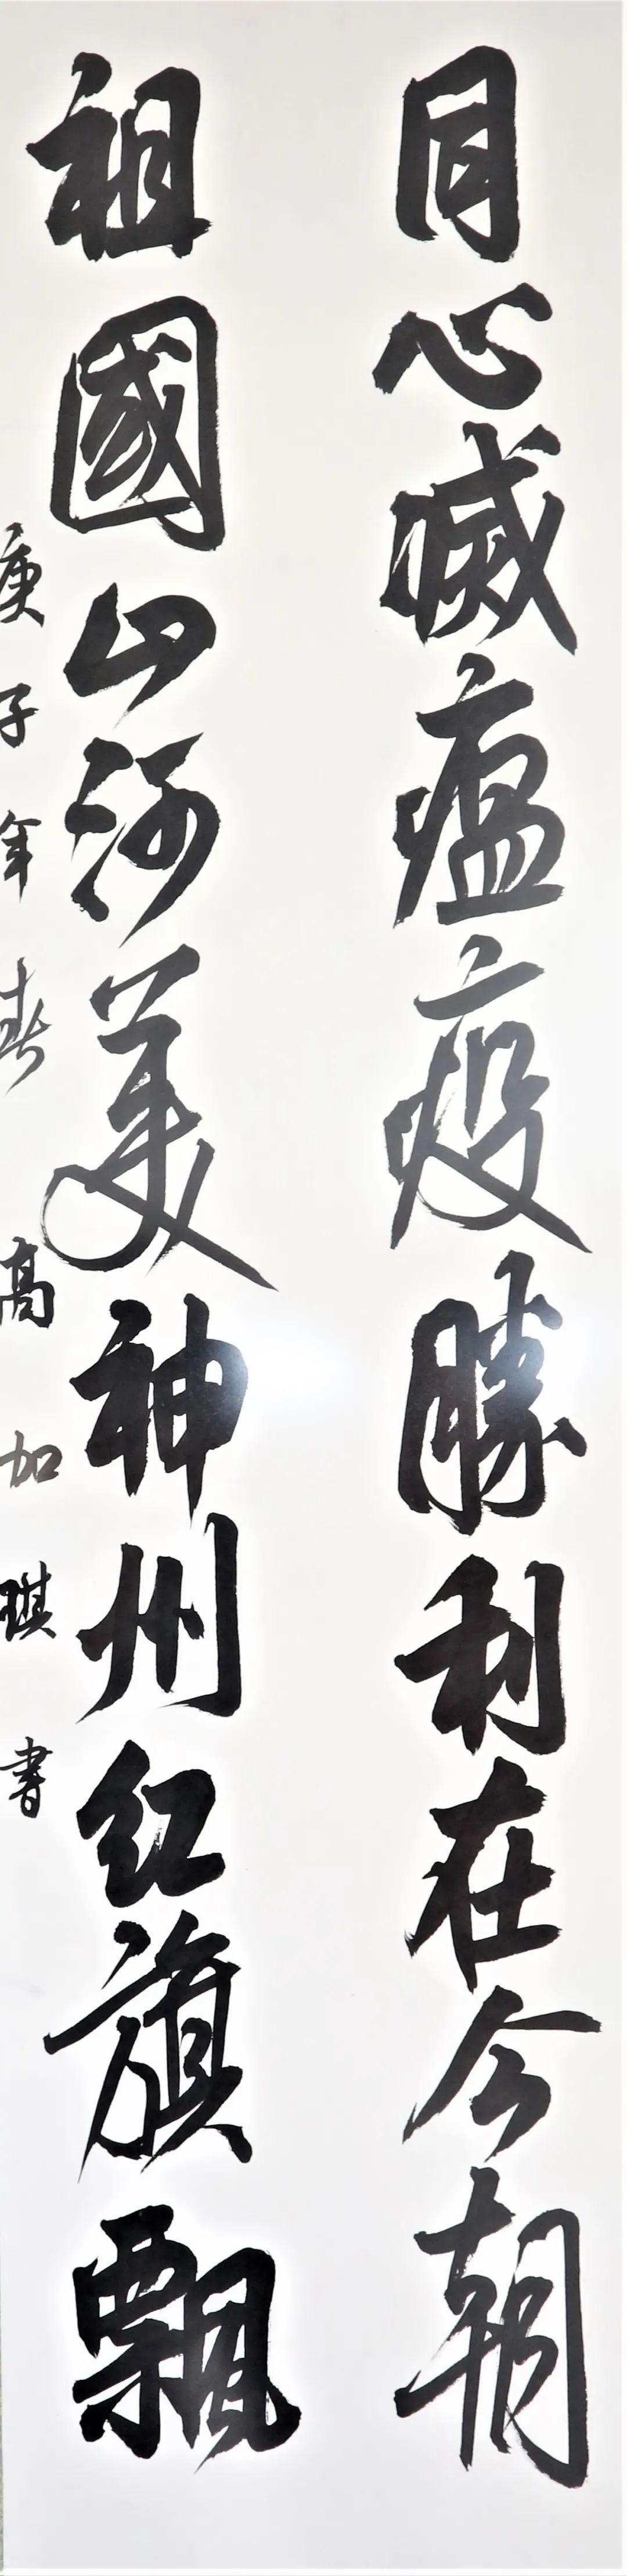 同心滅瘟疫勝利在今朝
祖國山河美神州红旗飄
庚子年春高加琪書